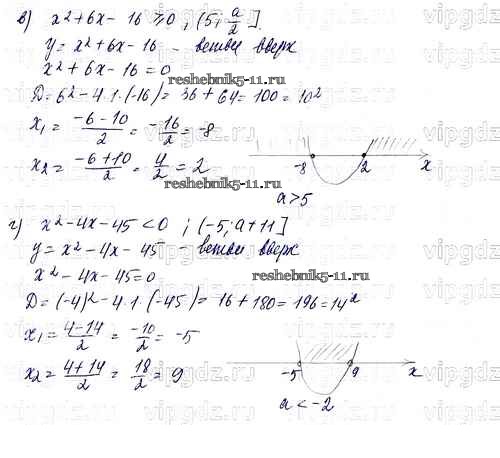 в) x² + 6x - 16 ≥ 0 ; (5; a/2].
y = x² + 6x - 16 - ветви вверх
x² + 6x - 16 = 0
reshebnik5-11.ru
D = 6² - 4·1·(-16) = 36 + 64 = 100 = 10²
x₁ = (-6-10)/2 = -16/2 = -8
x₂ = (-6+10)/2 = 4/2 = 2
reshebnik5-11.ru
-8 2 x
a > 5
г) x² - 4x - 45 < 0 ; (-5; a+11]
y = x² - 4x - 45 - ветви вверх
x² - 4x - 45 = 0
reshebnik5-11.ru
D = (-4)² - 4·1·(-45) = 16 + 180 = 196 = 14²
x₁ = (4-14)/2 = -10/2 = -5
x₂ = (4+14)/2 = 18/2 = 9
-5 9 x
a < -2
vipgdz.ru